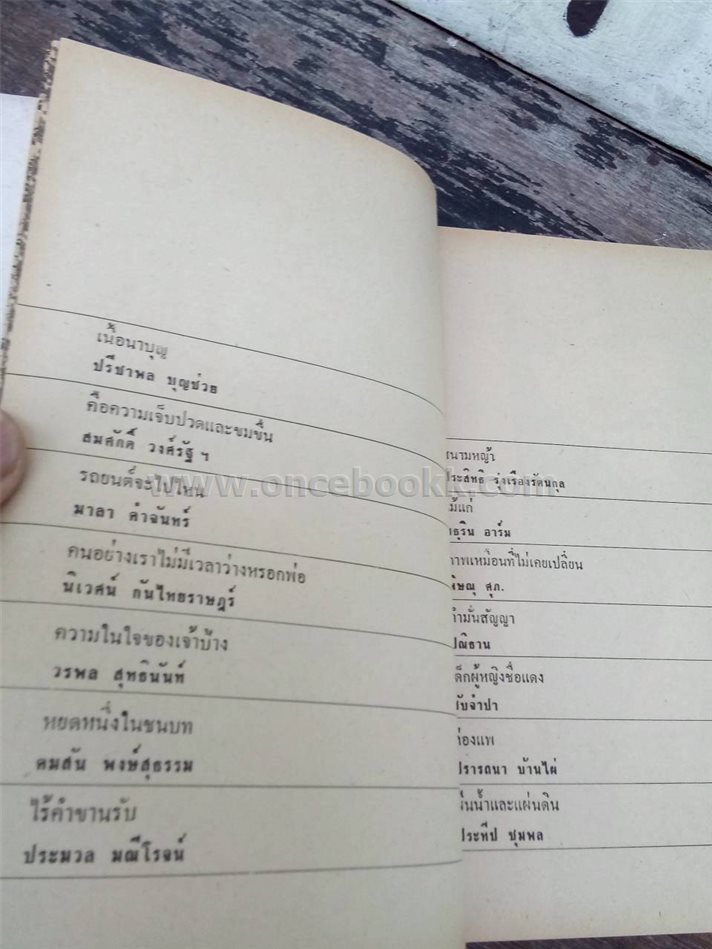 เนื้อนาบุญ
ปรีชาพล บุญช่วย
คือความเจ็บปวดและขมขื่น
สมศักดิ์ วงศ์รัฐฯ
รถยนต์จะไปไหน
มาลา คำจันทร์
คนอย่างเราไม่มีเวลาว่างหรอกพ่อ
นิเวศน์ กันไทยราษฎร์
ความในใจของเจ้าบ้าง
วรพล สุทธินันท์
หยดหนึ่งในชนบท
คมสัน พงษ์สุธรรม
ไร้คำขานรับ
ประมวล มณีโรจน์
สนามหญ้า
ประสิทธิ รุ่งเรืองรัตนกุล
ม้แก่
ธุริน อาร์ม
ภาพเหมือนที่ไม่เคยเปลี่ยน
พิษณุ ศุภ.
คำมั่นสัญญา
ปณิธาน
เด็กผู้หญิงชื่อแดง
ับจำปา
ล่องแพ
ปรารถนา บ้านไผ่
ผืนน้ำและแผ่นดิน
ประทีป ชุมพล
www.oncebookk.com